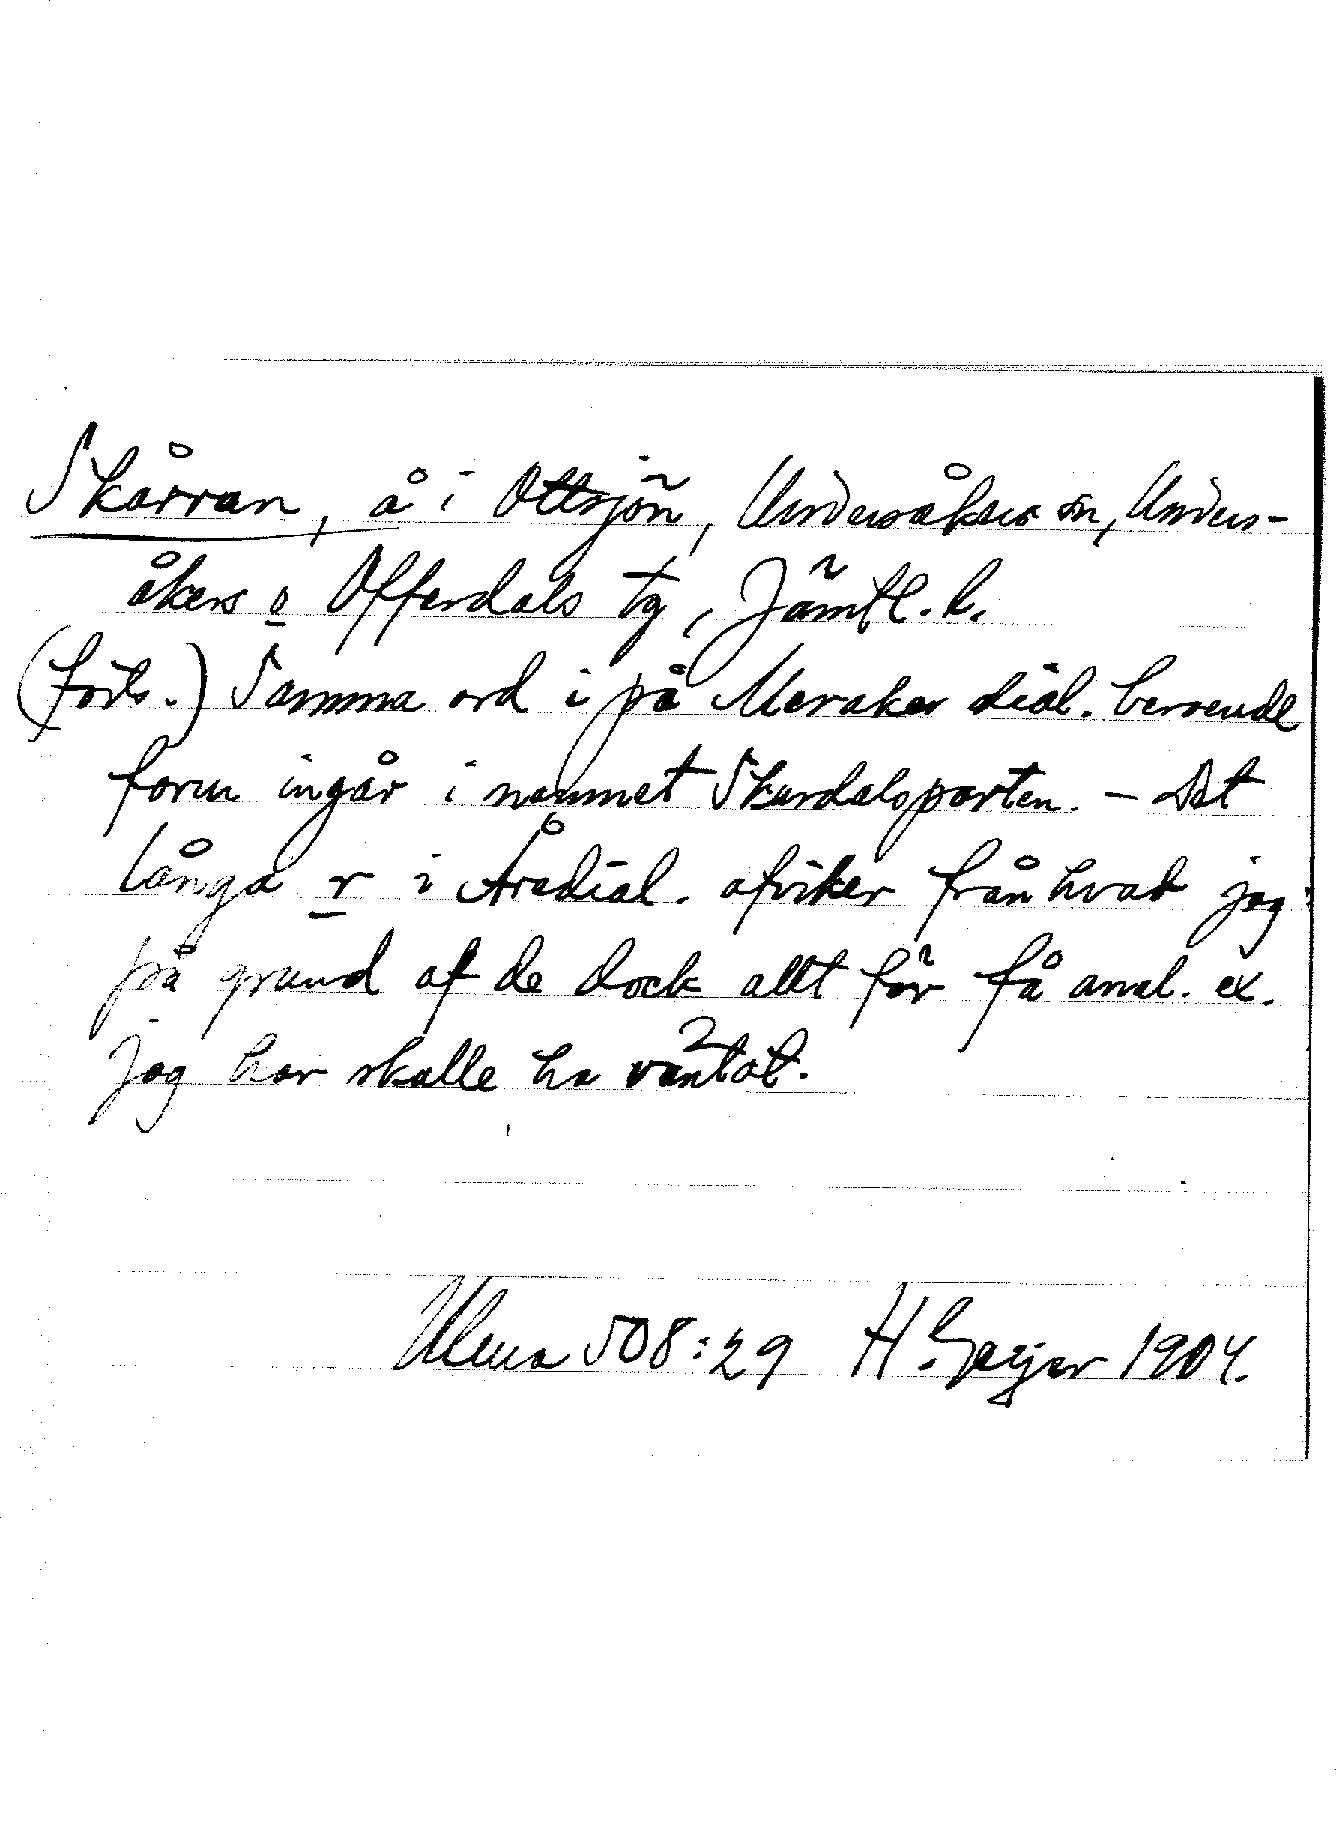 Skårran, å i Ottsjön, Undersåkers sn, Unders-
åkers o Offerdals tg, Jämtl. l.
(forts.) Samma ord i på Meraker dial. beroende
form ingår i namnet Skurdalsporten. – Det
långa r i Åredial. afviker från hvad jag
på grund af de dock allt för få anal. ex.
jag har skulle ha väntat.
Ulma 508:29 H. Geijer 1904.